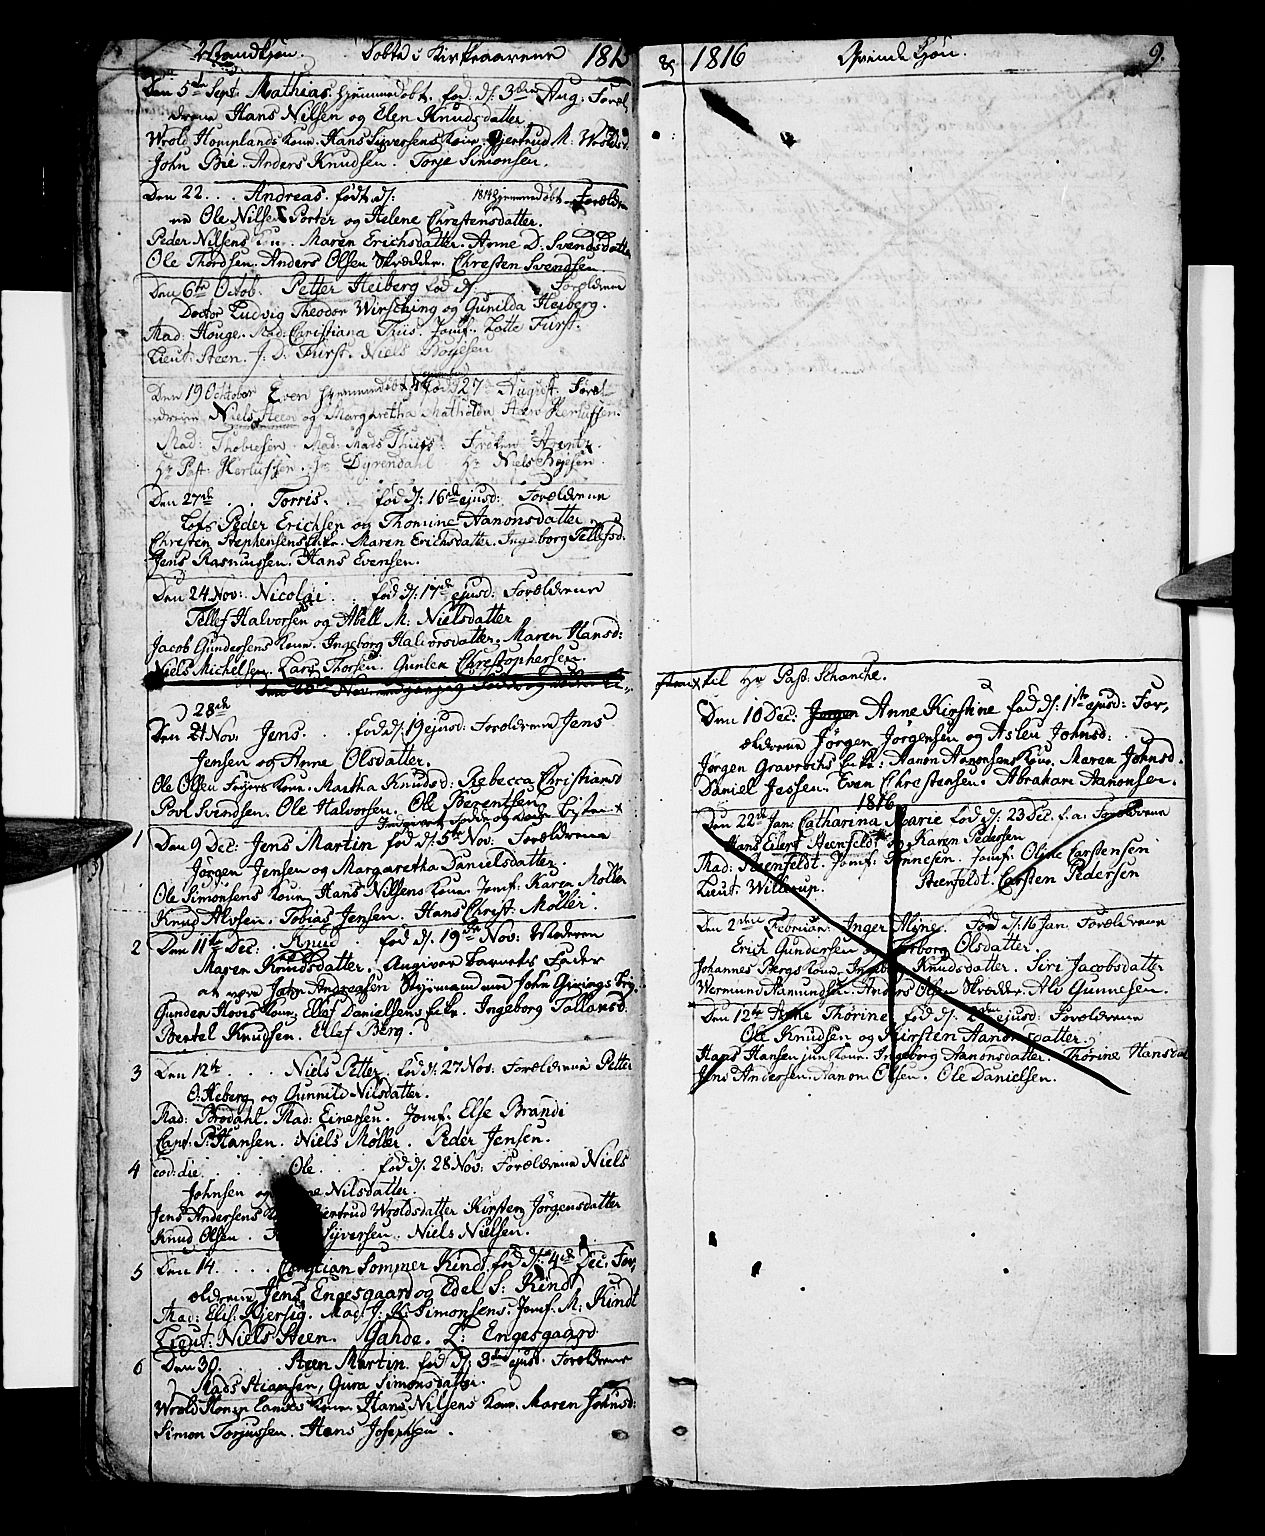 Mandkjøn. Døbte i Kirkeaarene 1815
Den 5te Sept: Mathias hjemmedøbt. fød d: 3die Aug: Foræl-
drene Hans Nilsen og Elen Knudsdatter
Wrold Homplands Kone. Hans Syversens Kone. Gjertrud M: Wroldsd.
John Bie. Anders Knudsen. Torje Simonsen.
Den 22. . . Andreas. født d: 1814 hjemmedøbt Forældre
ne Ole Nilsen Porter og Helene Christensdatter.
Peder Nilsens Kone. Maren Erichsdatter. Anne D. Svendsdatter
Ole Thordsen. Anders Olsen Skrædder. Christen Svendsen
Den 6te Octob. Petter Heiberg fød d: Forældrene
Doctor Ludvig Theodor Wirsching og Gunilda Heiberg.
Mad: Houge. Mad: Christiana Thiis. Jomf: Lotte Fürst.
Lieut: Steen. J. D. Fürst. Niels Boyesen
Den 19 Oktober Even hjemmedøbt fød 27 August. Foræl-
drene Niels Steen og Margaretha Mathilda Herlufsen.
Mad: Thobiesen. Mad: Mads Thiis. Frøken Arentz
Hr Past: Herlufsen. Hr Dyrendahl. Hr Niels Boyesen.
Den 27de . . . Torris. fød d: 16de ejusd: Forældrene
Lods Peder Erichsen og Thomine Aanonsdatter.
Christen Stephensens Enke. Maren Erichsdatter. Ingeborg Tellefsd.
Jens Rasmussen. Hans Evensen.
Den 24 Nov: Nicolai . . fød d: 17de ejusd: Forældrene
Tellef Halvorsen og Abell M: Nielsdatter
Jacob Gundersens Kone. Ingeborg Halvorsdatter. Maren Hansd:
Niels Michelsen. Lars Thorsen. Gunlen Christophersen.
28de
Den 21 Nov: Jens. . . fød d: 19 ejusd: Forældrene Jens
Jensen og Anne Olsdatter.
Ole Olsen Kone. Martha Knudsd: Rebecca Christiansd
Povl Svendsen. Ole Halvorsen. Ole Berentsen
1 Den 9 Dec: Jens Martin fød d: 5te Nov: Forældrene
Jørgen Jensen og Margaretha Danielsdatter.
Ole Simonsens Kone. Hans Nilsens Kone. Jomf: Karen Møller
Knud Alvsen. Tobias Jensen. Hans Christ: Møller.
2 Den 11te Dec: . Knud . fød d: 19de Nov: Moderen
Maren Knudsdatter. Angiver Barnets Fader
at være John Andreasen Styrmand med John
Gunder Kone. Ellef Danielsens Enke. Ingeborg Tallaksd.
Bertel Knudsen. Ellef Berg.
3 Den 12te . . . Niels Petter. fød d: 27 Nov: Forældrene Petter
O: Heberg og Gunnild Nilsdatter.
Mad: Brodahl. Mad: Einersen. Jomf: Else Brandi
Capt: P: Hansen. Niels Møller. Peder Jensen.
4 eod: die. . . . Ole . . . fød d: 28 Nov: Forældrene Niels
Johnsen og Nilsdatter.
Jens Andersens Gjertrud Wroldsdatter Kirsten Jørgensdatter
Knud Olsen. Syversen. Niels Nielsen.
5 Den 14. . . . Christian Sommer Kindt. fød d: 4de Dec: For,
ældrene Jens Engesgaard og Edel S: Kindt
Mad: Elis: Kjersig. Mad: J: K: Simonsens. Jomf: M: Kindt
Lieut: Niels Steen. Gahde. L: Engesgaard
6 Den 30. . . . Steen Martin. fød d: 3die ejusd. Forældrene
Mads Stiansen, Gura Simonsdatter.
Wrold Homplands Kone. Hans Nilsens Kone. Maren Johnsd:
Simon Torjussen. Hans Josephsen.
& 1816 Qvindekjøn. 9.
til Hr Past: Schanche.
Den 10 Dec: Jørgen Anne Kirstine fød d: 1ste ejusd: For,
ældrene Jørgen Jørgensen og Aslen Johnsd:
Jørgen Gravrochs Enke: Aanon Aanonsens Kone. Maren Johnsd.
Daniel Jessen. Even Christensen. Abraham Aanonsen.
1816
Den 22de Jan: Catharina Marie fød d: 23 Dec. f.a. Forældrene
Hans Eilert Steenfeldt og Karen Pedersen
Mad: Steenfeldt. Jomf: Jomf: Oline Carstensen
Lieut: Willerup. Steenfeldt. Carsten Pedersen
Den 2den Februar: Inger Alyne. Fød d: 16 Jan. Forældrene
Erich Gundersen Torborg Olsdatter.
Johannes Bergs Kone. Knudsdatter. Siri Jacobsdatter
Wermund Aamundsen. Anders Olsen Skrædder. Alv Gunnesen.
Den 12te Anne Thorine fød d: 2den ejusd: Forældrene
Ole Knudsen og Kirsten Aanonsdatter.
Hans Hansen jun: Kone. Ingeborg Aanonsdatter. Thorine Hansdat
Jens Andersen. Aanon Olsen. Ole Danielsen.